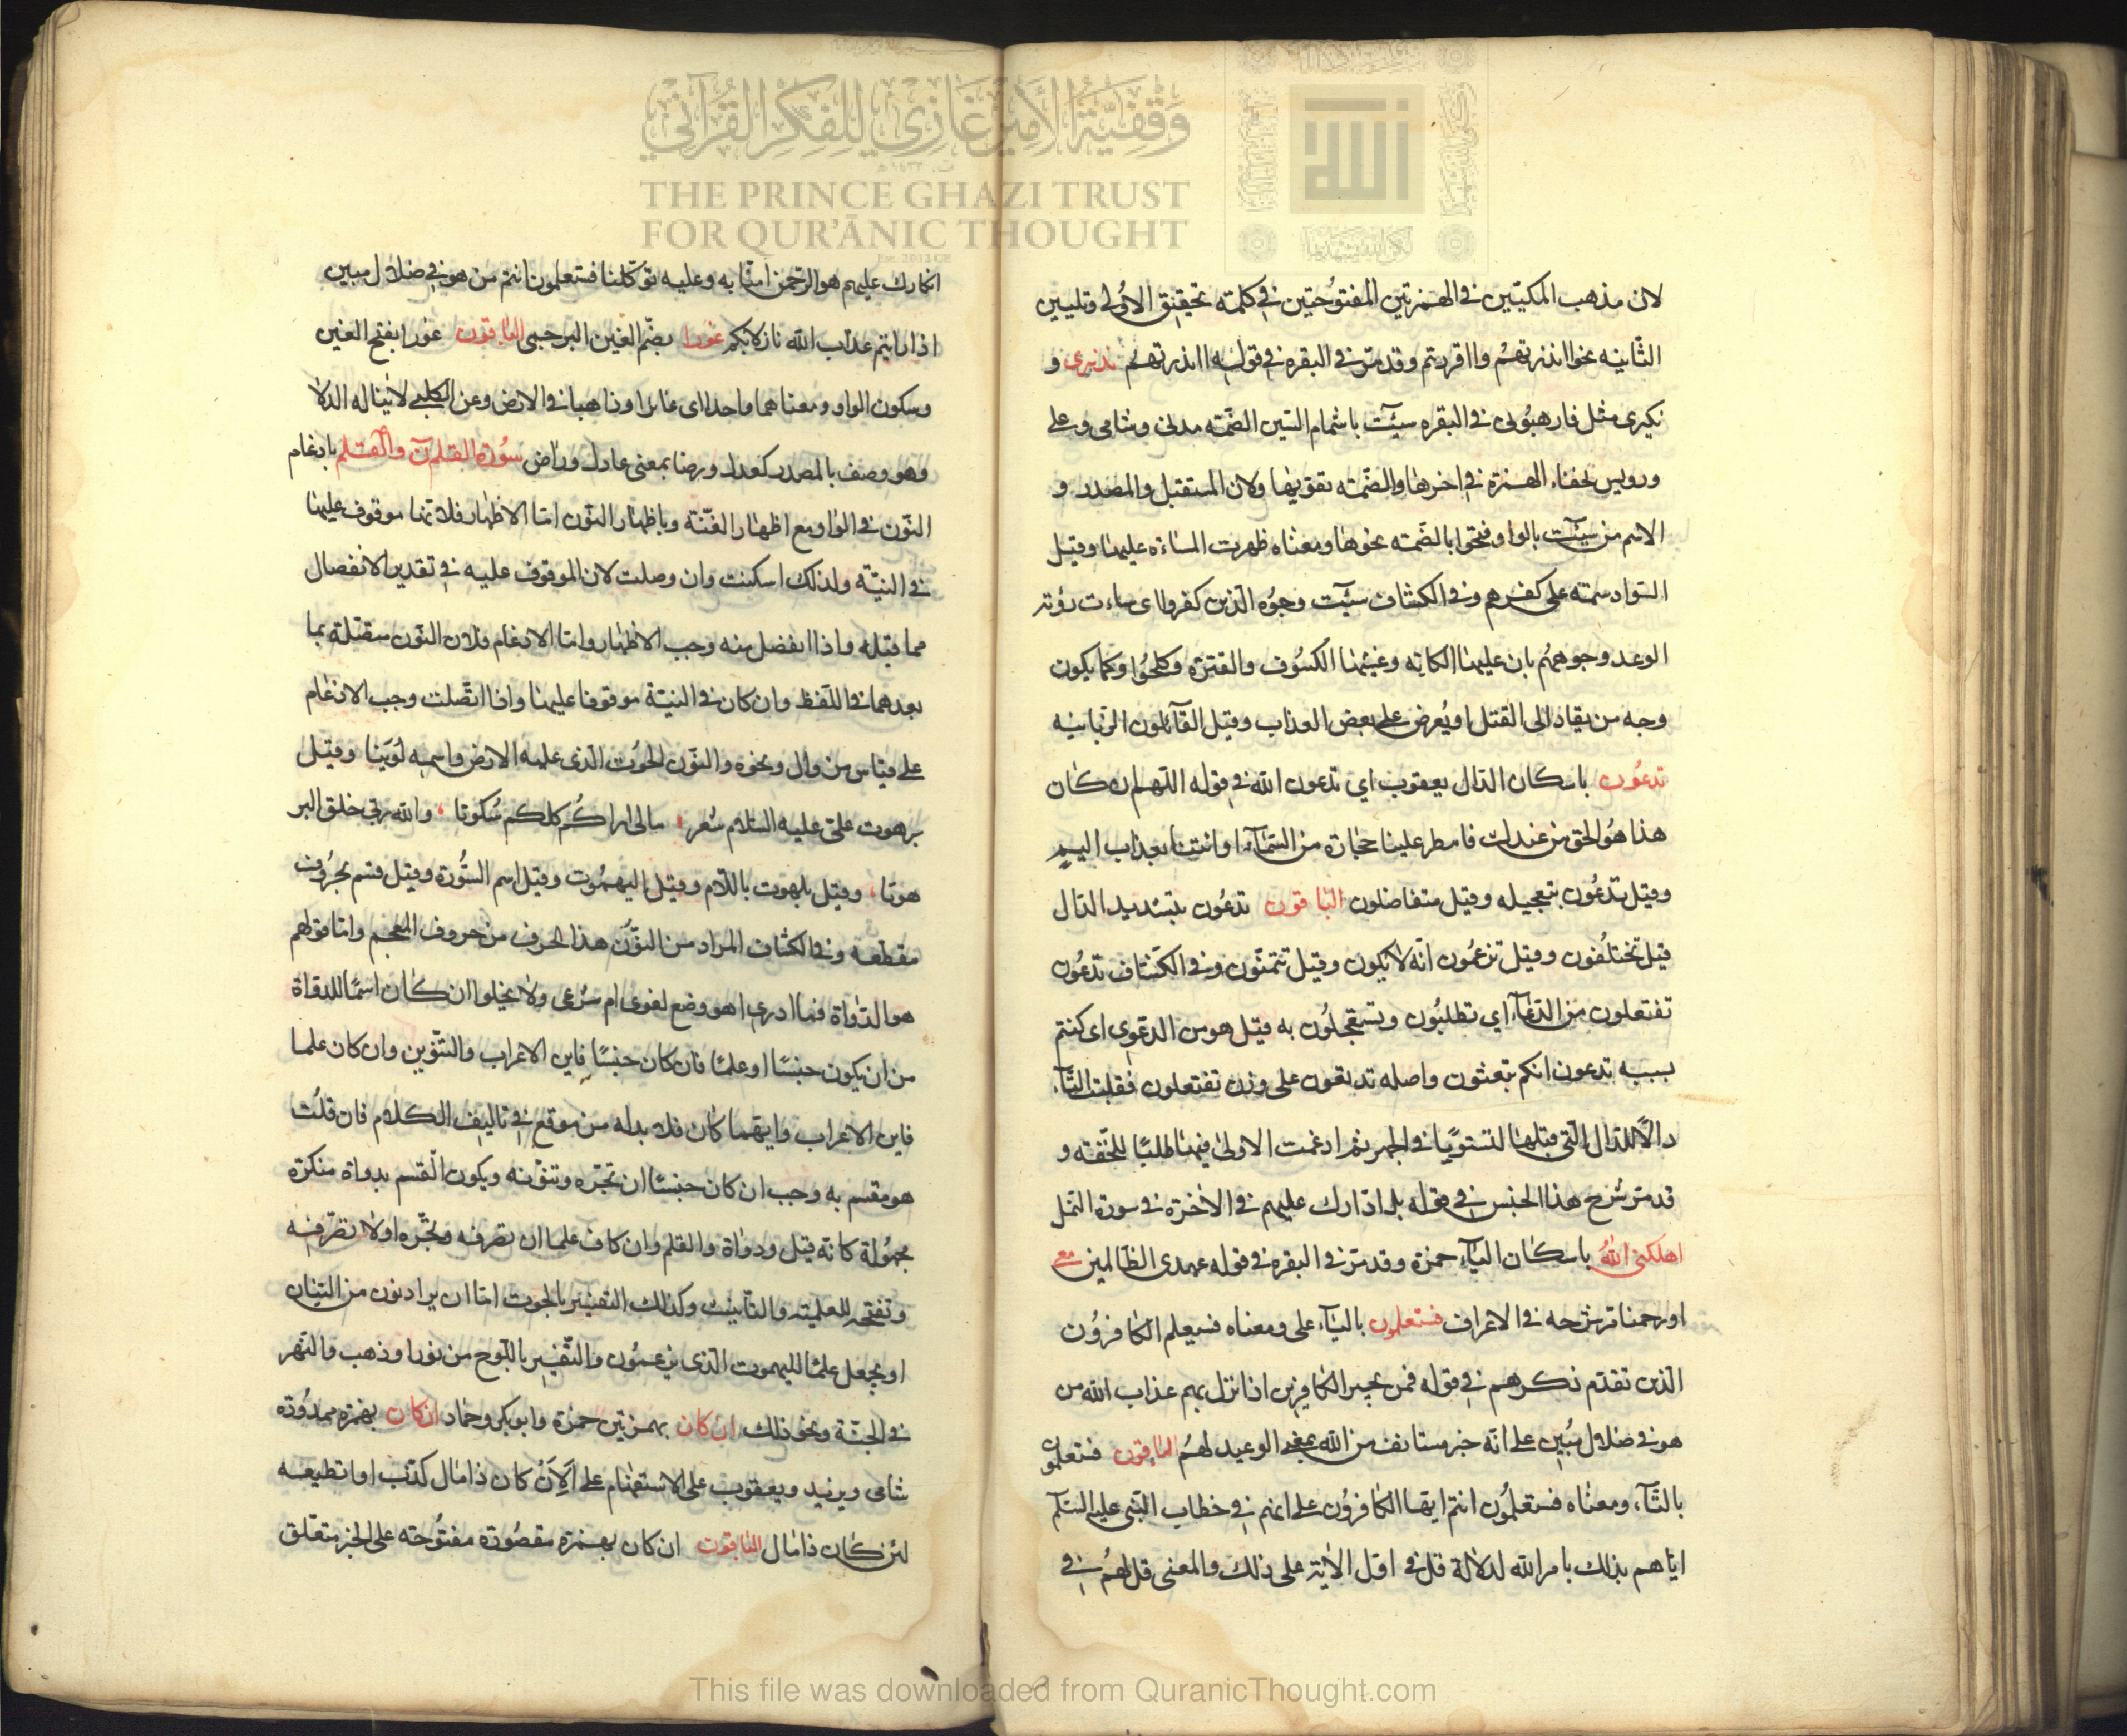 لان مذهب المكيّين في الهمزتين المفتوُحتين في كلمته تحقيق الاوُلى وتليين
الثّانيه نحو اانذرتهم واقررتم وقد مرّ في البقره في قوله اانذرتهم نذيرى و
نكيرى مثل فارهبُونى في البقره سيئت باشمام السّين الضّمّه مدنى وشامى وعلى
ورويس لخفاء الهمزة في اخرها والضّمّه تقويها ولان المستقبل والمصدر و
الاسم من سيئت بالواو فنحوا بالضّمه نحوها ومعناه ظهرت المساءة عليها وقيل
السّواد سمته على كفرهم وفي الكشاف سيئت وجوُه الّذين كفروا اى ساءت رؤية
الوعد وجوههُم بان عليها الكابه وغشيها الكسُوف والقترة وكلحُوا وكما يكون
وجه من يقاد الى القتل او يُعرض على بعض العذاب وقيل القآئلون الزبانيه
تدعُون باسكان الدال يعقوب اي تدعون الله في قوله اللّهم ان كان
هذا هُو الحق من عندك فامطر علينا حجارة من السّمآء او ائتنا بعذاب اليم
وقيل تدعُون بتعجيله وقيل متفاضلون الباقون تدعُون بتشديد الدال
قيل تختلُفون وقيل تزعمُون انّه لا يكون وقيل تتمنّون وفي الكشاف تدعُون
تفتعلون من الدّعآء اي تطلبُون وتستعجلُون به قيل هو من الدعوى اى كنتم
بسببه تدعون انكم تبعثون واصله تدتعون على وزن تفتعلون فقلبت التّآء
دالًا للدال الّتي قبلها لتستويًا في الجهر ثم ادغمت الاولىٰ فيها طلبًا للخّفة و
قد مرّ شرح هذا الجنس في قوله بل ادّارك عليهم في الاخرة في سورة النمل
اهلكنى اللهُ باسكان اليآء حمزة وقد مرّ في البقره في قوله عهدى الظالمين مع
او رحمنا مرّ شرحه في الاعراف فستعلمون باليآء على ومعناه فسيعلم الكافروُن
الّذين تقدم ذكرهم في قوله فمن يجير الكافرين اذا نزل بهم عذاب الله من
هو في ضلال مُبين على انّه خبر مستانف من الله بمعنى الوعيد لهُم الباقون فستعلمون
بالتّآء ومعناه فستعلمُون انتم ايّها الكافروُن على انهم في خطاب النّبى عليه السّلم
ايّاهم بذلك بامر الله لدلالة قل في اوّل الاية على ذلك والمعنى قل لهُم في
انكارك عليهم هو الرّحمن امنّا به وعليه توكّلنا فستعلمون انتم من هو في ضلال مبين
اذا رايتم عذاب الله نازلا بكم غورا بضّم الغين البرجمى الباقون غورا بفتح الغين
وسكون الواو ومعناهما واحد اى غائرا وذاهبا في الارض وعن الكلبي لا تناله الدلا
وهو وصف بالمصدر كعدل ورضا بمعنى عادل وراض سُورة القلم نٓ والقلم بادغام
النّون في الواو مع اظهار الغنّة وباظهار النّون امّا الاظهار فلانها موقوف عليها
في النيّة ولذلك اسكنت وان وصلت لان الموقوف عليه في تقدير الانفصال
مما قبله واذا انفصل منه وجب الاظهار وامّا الادغام فلان النّون متّصلة بما
بعدها في اللّفظ وان كان في النيّة موقوفا عليها واذا اتّصلت وجب الادغام
على قياس من وال ونحوه والنّون الحُوت الّذى عليه الارض واسمه لُوَيثا وقيل
برهوت علىّ عليه السّلام شعر مالى اراكُم كلكم سُكوتا والله ربّي خلق البر
هوتا وقيل بلهوت باللّام وقيل اليهمُوت وقيل اسم السّورة وقيل قسم بحرُوف
مقطّعه وفي الكشاف المراد من النوُّن هذا الحرف من حروف المعجم وامّا قولهم
هو الدّواة فما ادرى اهو وضع لغوى ام شرعى ولا يخلوا ان كان اسمًا للدواة
من ان يكون جنسًا او علمًا فان كان جنسًا فاين الاعراب والتنوّين وان كان علما
فاين الاعراب وايّهما كان فلا بدله من موقع في تاليف الكلام فان قلُت
هو مقسم به وجب ان كان جنسًا ان تجرّه وتنوّنه ويكون القسم بدواة منكرة
مجهُولة كانّه قيل ودواة والقلم وان كان علما ان تصرفه وتجّره اولا تصرّفه
وتفتحه للعلميّة والتّانيث وكذلك التفسير بالحوت امّا ان يراد نون من النينان
او يجعل علمًا لليهموت الّذى يزعمُون والتّفسير باللّوح من نور او ذهب والنّهر
في الجنّة ونحو ذلك ان كان بهمزتين حمزة وابو بكر وحماد ان كان بهمزة ممدُودة
شامى ويزيد ويعقوب على الاستفهام على اَلِاَنْ كان ذا مال كذّب او اتطيعه
لئن كان ذا مال الباقون ان كان بهمزة مقصُورة مفتُوحة على الخبر متعلّق
وَقْفِيَّةُ الأَمِيرِ غَازِي لِلْفِكْرِ القُرْآنِي
THE PRINCE GHAZI TRUST
FOR QUR'ĀNIC THOUGHT
This file was downloaded from QuranicThought.com